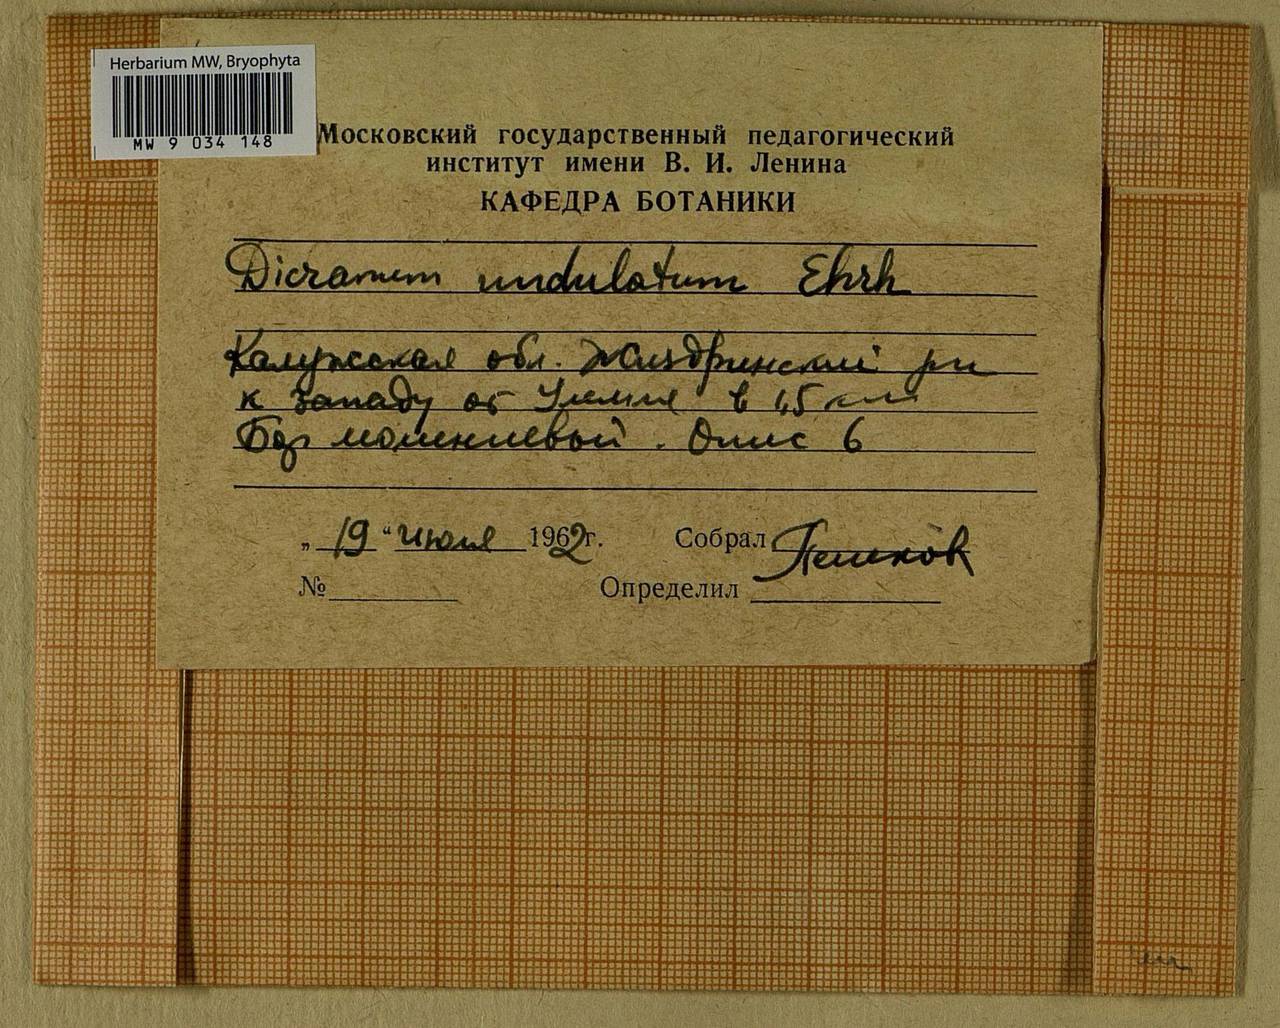 Herbarium MW, Bryophyta
MW 9 034 148
Московский государственный педагогический
институт имени В. И. Ленина
КАФЕДРА БОТАНИКИ
Dicranum undulatum Ehrh
Калужская обл. Жиздринский рн
к западу от в 1,5 км
Бор . Опис 6
„ 19 “ июля 1962г. Собрал Пешков
№ Определил